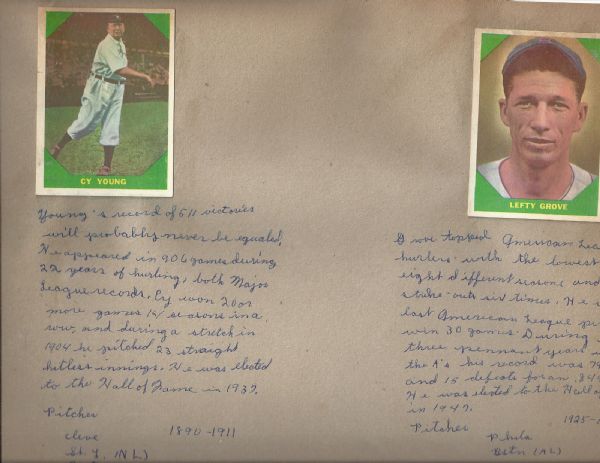 CY YOUNG
Young's record of 511 victories
will probably never be equaled.
He appeared in 906 games during
22 years of hurling, both Major
League records. Cy won 20 or
more games 14 seasons in a
row, and during a stretch in
1904 he pitched 23 straight
hitless innings. He was elected
to the Hall of Fame in 1937.
Pitcher
Cleve 1890-1911
St. L. (NL)
LEFTY GROVE
Grove topped American Lea
hurlers with the lowest
eight different seasons and
strike-outs six times. He w
last American League pi
win 30 games. During
three pennant years w
the A's his record was 79
and 15 defeats for an .84
He was elected to the Hall o
in 1947.
1925-1
Pitcher
Phila
Bstn (AL)